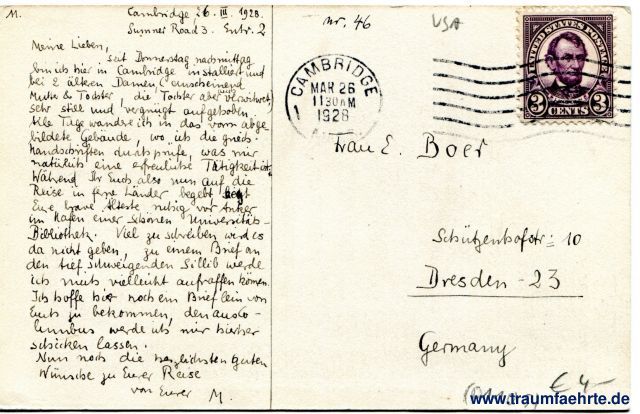 M.
Cambridge 26. III. 1928.
Sumner Road 3. Entr. 2
Meine Lieben,
seit Donnerstag nachmittag
bin ich hier in Cambridge installiert und
bei 2 älteren Damen, anscheinend
Mutter & Tochter, die Tochter aber auch verwitwet,
sehr still und vergnügt aufgehoben.
Alle Tage wandre ich in das vorn abge-
bildete Gebäude, wo ich die griech.
Handschriften durchprüfe, was mir
natürlich eine erfreuliche Tätigkeit ist.
Während Ihr Euch also nun auf die
Reise in ferne Länder begebt, liegt
Eure brave Älteste ruhig vor Anker
im Hafen einer schönen Universitäts-
Bibliothek. Viel zu schreiben wird es
da nicht geben, zu einem Brief an
den tief schweigenden Sillib werde
ich mich vielleicht aufraffen können.
Ich hoffe hier noch ein Brieflein von
Euch zu bekommen, den aus Co-
lumbus werde ich mir hierher
schicken lassen.
Nun noch die herzlichsten guten
Wünsche zu Eurer Reise
von Eurer M.
nr. 46
USA
CAMBRIDGE
MAR 26
1130AM
1928
UNITED STATES POSTAGE
3 3
CENTS
Frau E. Boer
Schützenhofstr. 10
Dresden-23
Germany
€ 4-
www.traumfaehrte.de